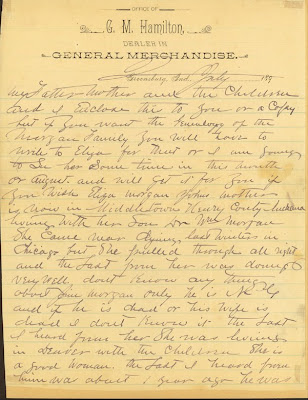 OFFICE OF
G. M. Hamilton,
DEALER IN
GENERAL MERCHANDISE.
Ind, July 189
my Father Mother and the Children
and I Enclose this to you or a Copy
but if you want the
Morgan Family you will have to
write to Eliza for that or I am going
to See her Some time in this month
or August and will get it for you if
you wish Eliza Morgan John mother
is now in Middletown Henry County Indiana
living with her Son Dr Wm Morgan
She Came near dying last winter in
Chicago but She pulled through all right
and the last from her was doing
very well. dont know any thing
about Jim Morgan only he is
and if he is dead or his wife is
dead I dont know it the last
I heard from her She was living
in Denver with the Children She is
a good woman. the last I heard from
him was about 1 year ago he was